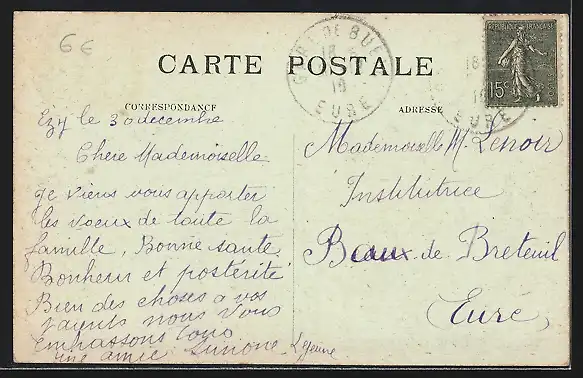 6€
CARTE POSTALE
GARE DE BUE
18
19
EURE
REPUBLIQUE FRANÇAISE
15c
18
19
EURE
CORRESPONDANCE
ADRESSE
Ezy le 30 decembre
Chere Mademoiselle
Je viens vous apporter
les voeux de toute la
famille, Bonne sante
Bonheur et postérite
Bien des choses a vos
parents nous vous
embrassons tous
une amie Simone Lejeune
Mademoiselle M. Lenoir
Institutrice
Beaux de Breteuil
Eure,